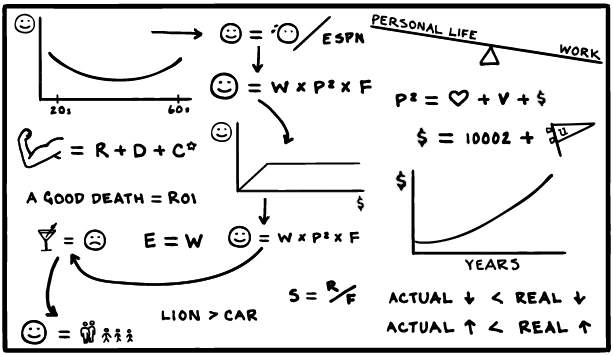 20s 60s
= /ESPN
= W x P² x F
PERSONAL LIFE
WORK
P² = ♡ + V + $
$ = 10002 + U
= R + D + C☆
A GOOD DEATH = ROI
$
$
YEARS
= ☹
E = W
= W x P² x F
S = R/F
LION > CAR
=
ACTUAL ↓ < REAL ↓
ACTUAL ↑ < REAL ↑